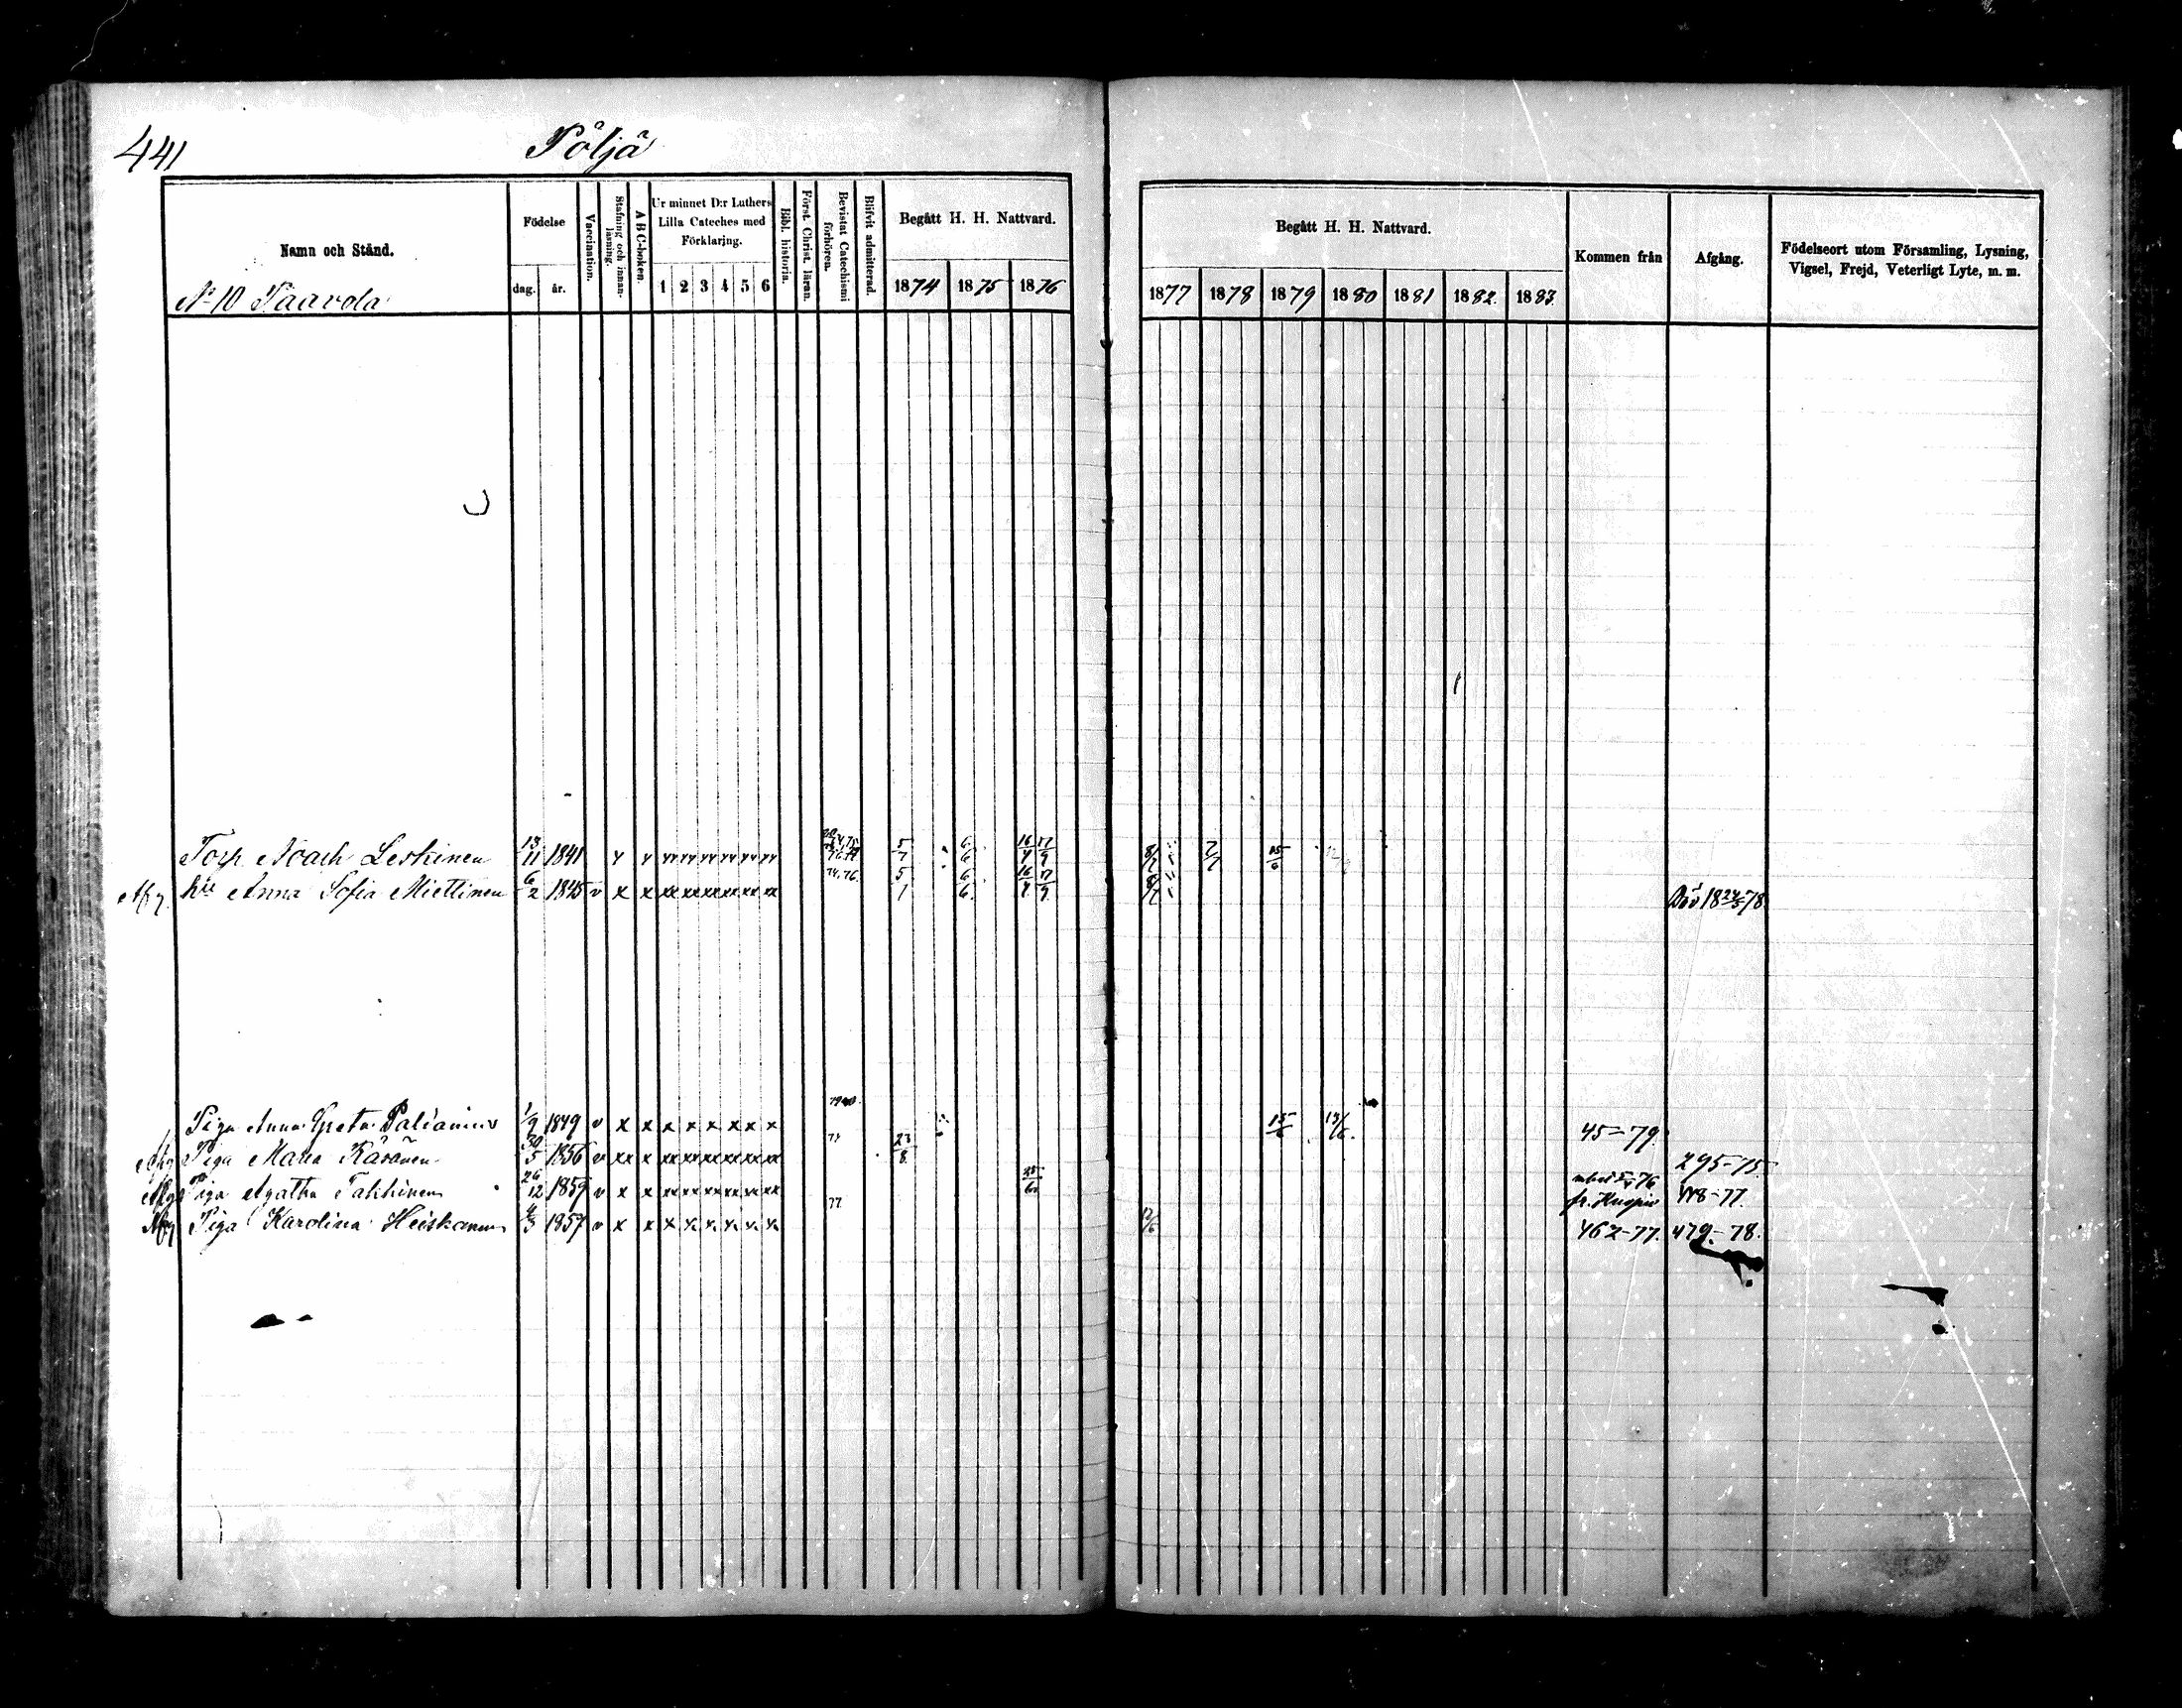 441
Pöljä
Namn och Stånd.
Nº 10 Saarela
Födelse
dag. år.
Vaccination.
Stafning och innanläsning.
A B C-boken.
Ur minnet D:r Luthers Lilla Cateches med Förklaring.
1 2 3 4 5 6
Bibl. historia.
Först. Christ. läran.
Bevistat Catechismi förhören.
Blifvit admitterad.
Begått H. H. Nattvard.
1874 1875 1876
Begått H. H. Nattvard.
1877 1878 1879 1880 1881 1882 1883
Kommen från
Afgång.
Födelseort utom Församling, Lysning, Vigsel, Frejd, Veterligt Lyte, m. m.
Torp Noach Leskinen 13/11 1841 5/7 6/6 16/4 17/9 8/7 15/6
Afg. hu Anna Sofia Miettinen 6/2 1845 v x x xx xx xx xx xx xx 74.76. 5/7 6/6 16/4 17/9 8/7 Död 18 24/5 78
Piga Anna Greta 1/9 1849 v x x x x x x x x 15/6 13/6 45-79.
Afg Piga Maria Räsänen 30/5 1856 v xx x xx xx xx xx xx xx 23/8 295-75
Afg Piga Agatha Takkinen 26/12 1859 v x x xx xx xx xx xx xx 25/6 fr. Kuopio 448-77.
Afg Piga Karolina Heiskanen 4/3 1857 v x x x x x x x x 77 12/6 462-77. 479-78.